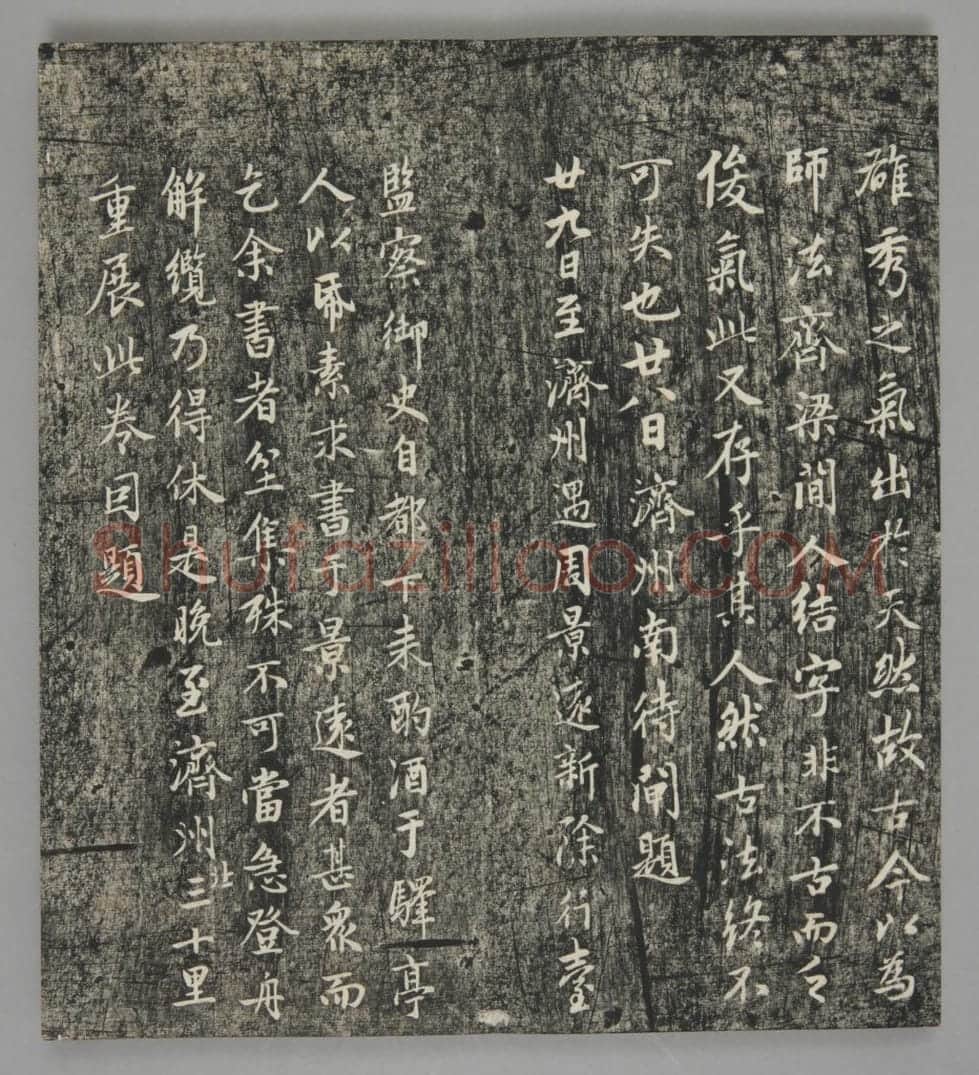 雄秀之氣出於天然故古今以為
師法齊梁間人結字非不古而乏
俊氣此又存乎其人然古法終不
可失也廿八日濟州南待閘題
廿九日至濟州遇周景遠新除行臺
監察御史自都下來酌酒于驛亭
人以帋素求書于景遠者甚衆而
乞余書者坌集殊不可當急登舟
解纜乃得休是晚至濟州北三十里
重展此卷因題
shufaziliao.COM